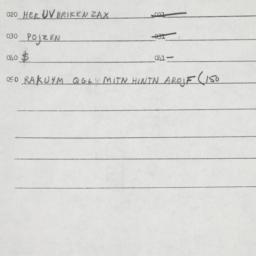 020 HER UV BRIKEN ZAX 021
030 POJZEN 031
040 $ 041 -
050 RAKUYM MITN HINTN AROJF (150